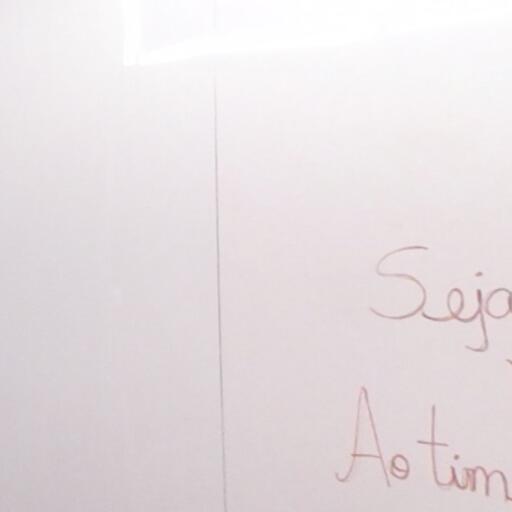 Seja
Ao tim